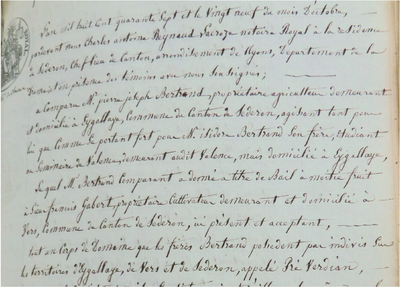 L'an mil huit Cent quarante Sept et le Vingt neuf du mois D'octobre,
pardevant nous Charles antoine Reynaud Lacroze notaire Royal à la résidence
de Séderon, Chef lieu de Canton, arrondissement de Nyons, Département de la
Drome; en présence des témoins avec nous Soussignés;
a Comparu Mr pierre joseph Bertrand, propriétaire agriculteur demeurant
et domicilié à Eygallaye, Commune du Canton de Séderon, agissant tant pour
lui que Comme Se portant fort pour Mr isidore Bertrand Son frère, Etudiant
au Séminaire de Valence, demeurant audit Valence, mais domicilié à Eygallaye,
Lequel Mr Bertrand Comparant a donné a titre de Bail à moitié fruit
à jean francois Gabert, propriétaire Cultivateur demeurant et domicilié à
Vers, Commune du Canton de Séderon, ici présent et acceptant,
tout un Corps de Domaine que les frères Bertrand possedent par indivis Sur
les territoires d'Eygallaye, de Vers et de Séderon, appelé Pré Verdian,